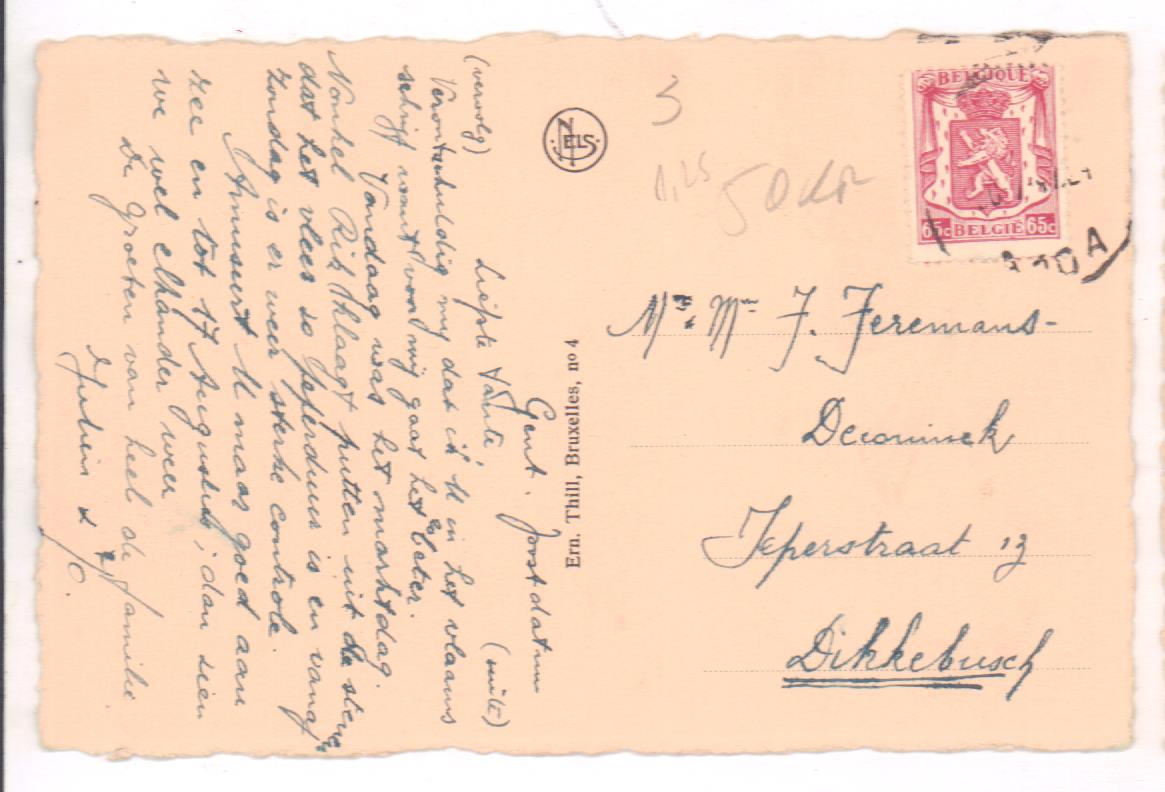 Gent. Postdatum
(vervolg) Liefste Tante, (suite)
Verontschuldig mij dat ik U in het vlaams
schrijf want voor mij gaat het beter.
Vandaag was het marktdag.
Nonkel Rik klaagt putten uit de stenen
dat het vlees zo peperduur is en vanaf
Zondag is er weer sterke controle.
Amuseert U maar goed aan
zee en tot 17 Augustus, dan zien
we wel elkander weer
De groeten van heel de familie
Julien
NELS
Ern. Thill, Bruxelles, no 4
3
1,25
50
BELGIQUE
65c BELGIË 65c
Mr. Mme J. Jeremans-
Deconinck
Ieperstraat 13
Dikkebusch